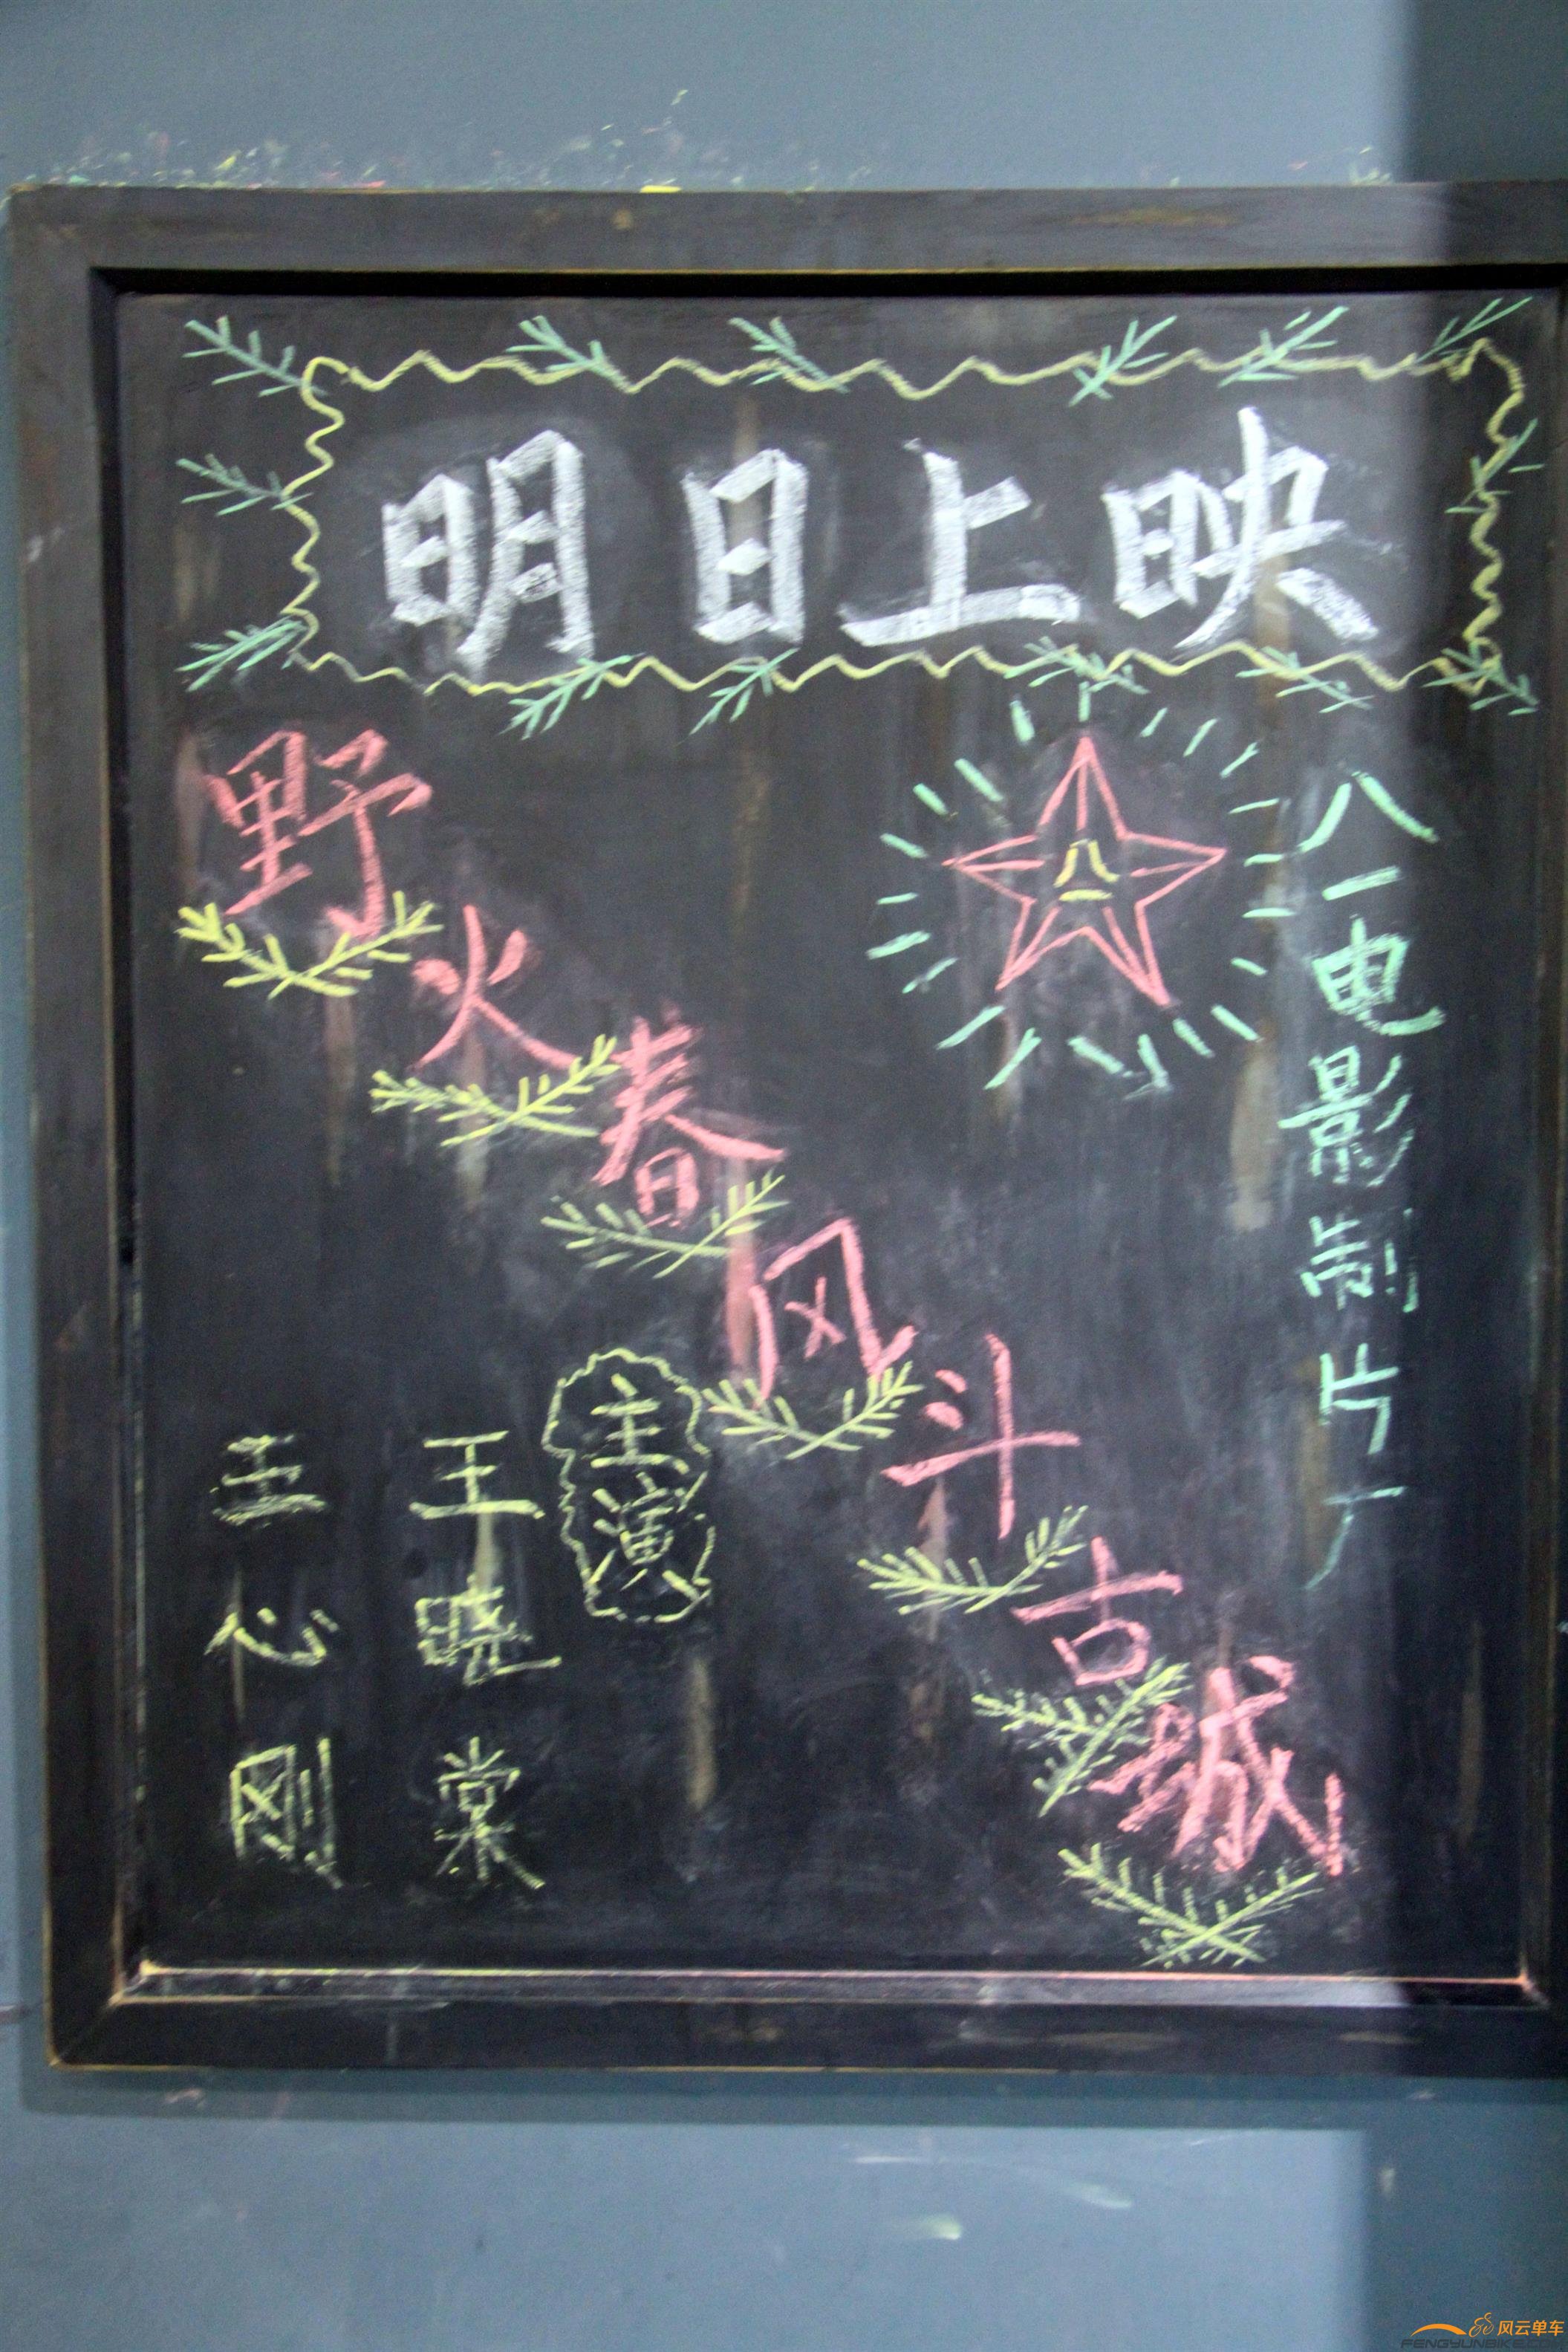 明日上映
八一
八一电影制片厂
野火春风斗古城
主演
王晓棠
王心刚
风云单车
FENGYUNBIKE.COM